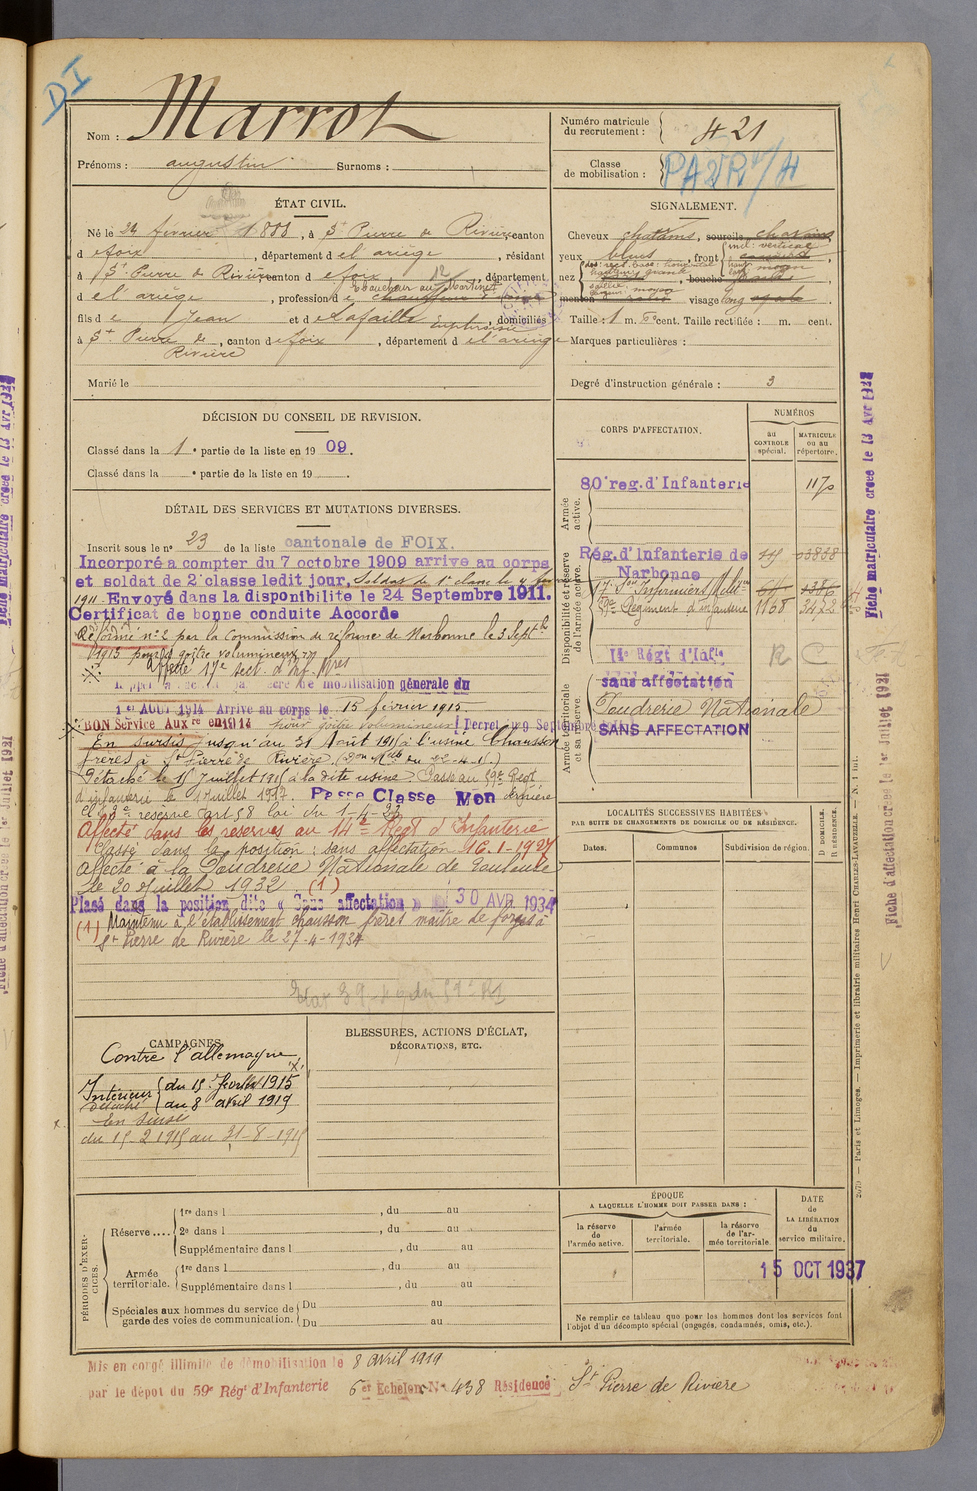 DI
Nom : Marrot
Prénoms : augustin Surnoms :
Numéro matricule du recrutement : 421
Classe de mobilisation :
ÉTAT CIVIL.
Né le 24 février 1888, à St Pierre de Rivière, canton
d e foix, département d e l'ariège, résidant
à St Pierre de Rivière canton d e foix, département
d e l'ariège, profession d e
fils d e Jean et d e Lafaille Euphrosine, domiciliés
à St Pierre de Rivière, canton d e foix, département d e l'ariège
Marié le
SIGNALEMENT.
Cheveux chatains, sourcils chatains
yeux bleus, front incl: verticale
nez dos: rect. base: horizontal bouche
menton visage long
Taille : 1 m. cent. Taille rectifiée : m. cent.
Marques particulières :
Degré d'instruction générale : 3
DÉCISION DU CONSEIL DE REVISION.
Classé dans la 1e partie de la liste en 1909.
Classé dans la e partie de la liste en 19 .
CORPS D'AFFECTATION.
NUMÉROS
au CONTROLE spécial.
MATRICULE ou au répertoire.
Armée active.
80e reg. d'Infanterie 1170
Disponibilité et réserve de l'armée active.
Rég. d'Infanterie de Narbonne
59e Régiment d'infanterie 1168 3422
14e Régt d'Infie R C
Armée territoriale et sa réserve.
sans affectation
Poudrerie Nationale
SANS AFFECTATION
DÉTAIL DES SERVICES ET MUTATIONS DIVERSES.
Inscrit sous le no 23 de la liste cantonale de FOIX.
Incorporé a compter du 7 octobre 1909 arrive au corps
et soldat de 2e classe ledit jour, Soldat de 1e classe le
1911 Envoyé dans la disponibilite le 24 Septembre 1911.
Certificat de bonne conduite Accorde
Réformé no 2 par la Commission de réforme de Narbonne le 3 Septbre
1913 pour goitre volumineux
Affecté 17e sect. d'Inf. Mres
mobilisation générale du
1er AOUT 1914 Arrive au corps le 15 février 1915.
BON Service Auxre en 1914 pour goitre volumineux Decret du 9 Septembre
En sursis jusqu'au 31 Août 1915 à l'usine Chausson
frères à St Pierre de Rivière.
Détaché le 15 Juillet 1915 à la dite usine. Passé au 59e Régt
d'infanterie le 1 Juillet 1917. Passe Classe Mon dernière
Affecté dans les réserves au 14e Régt d'Infanterie
Classé dans la position : sans affectation 16-1-1927
Affecté à la Poudrerie Nationale de Toulouse
le 20 Juillet 1932 (1)
Placé dans la position dite « Sans affectation » le 30 AVR 1934
(1) Maintenu à l'établissement chausson frères maître de forges à
St Pierre de Rivière le 27-4-1934
LOCALITÉS SUCCESSIVES HABITÉES
PAR SUITE DE CHANGEMENTS DE DOMICILE OU DE RÉSIDENCE.
Dates.
Communes
Subdivision de région.
D DOMICILE.
R RÉSIDENCE.
CAMPAGNES
Contre l'allemagne
Intérieur du 15 février 1915
détaché au 8 avril 1919
En sursis
du 15-2-1915 au 31-8-1915
BLESSURES, ACTIONS D'ÉCLAT,
DÉCORATIONS, ETC.
PÉRIODES D'EXERCICES.
Réserve....
1re dans l , du au
2e dans l , du au
Supplémentaire dans l , du au
Armée territoriale.
1re dans l , du au
Supplémentaire dans l , du au
Spéciales aux hommes du service de garde des voies de communication.
Du au
Du au
ÉPOQUE
A LAQUELLE L'HOMME DOIT PASSER DANS :
la réserve de l'armée active.
l'armée territoriale.
la réserve de l'armée territoriale.
DATE de LA LIBÉRATION du service militaire.
15 OCT 1937
Ne remplir ce tableau que pour les hommes dont les services font
l'objet d'un décompte spécial (engagés, condamnés, omis, etc.).
Mis en congé illimité de démobilisation le 8 avril 1919
par le dépot du 59e Régt d'Infanterie 6er Echelon No 438 Résidence St Pierre de Rivière
Fiche matriculaire creee le 13 Avr 1928
Fiche d'affectation creee le 1er Juillet 1931
2079 — Paris et Limoges. — Imprimerie et librairie militaires Henri CHARLES-LAVAUZELLE. — N. 1 int.